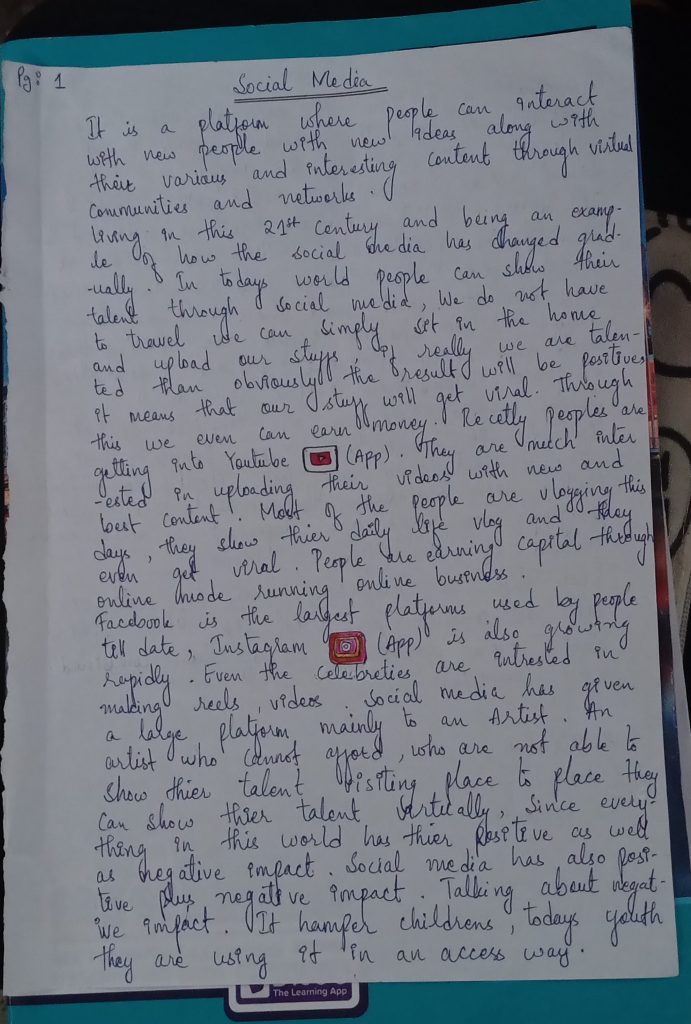 Pg: 1
Social Media
It is a platform where people can interact
with new people with new ideas along with
their various and interesting content through virtual
communities and networks.
living in this 21st century and being an examp-
le of how the social media has changed grad-
-ually. In todays world people can show their
talent through social media, We do not have
to travel we can simply set in the home
and upload our stuffs, if really we are talen-
ted than obviously the result will be positives
it means that our stuff will get viral. Through
this we even can earn money. Recetly peoples are
getting into Youtube (App). They are mech inter
-ested in uploading their videos with new and
best content. Most of the people are vlogging this
days, they show thier daily life vlog and they
even get viral. People are earning capital through
online mode running online business.
Facebook is the largest platforms used by people
till date, Instagram (App) is also growing
rapidly. Even the celebreties are intrested in
making reels, videos. Social media has given
a large platform mainly to an Artist. An
artist who cannot afford, who are not able to
show thier talent visiting place to place they
can show thier talent vertically, Since every-
thing in this world has thier positive as well
as negative impact. Social media has also posi-
tive plus negative impact. Talking about negat-
ive impact. It hamper childrens, todays youth
they are using it in an access way.
The Learning App